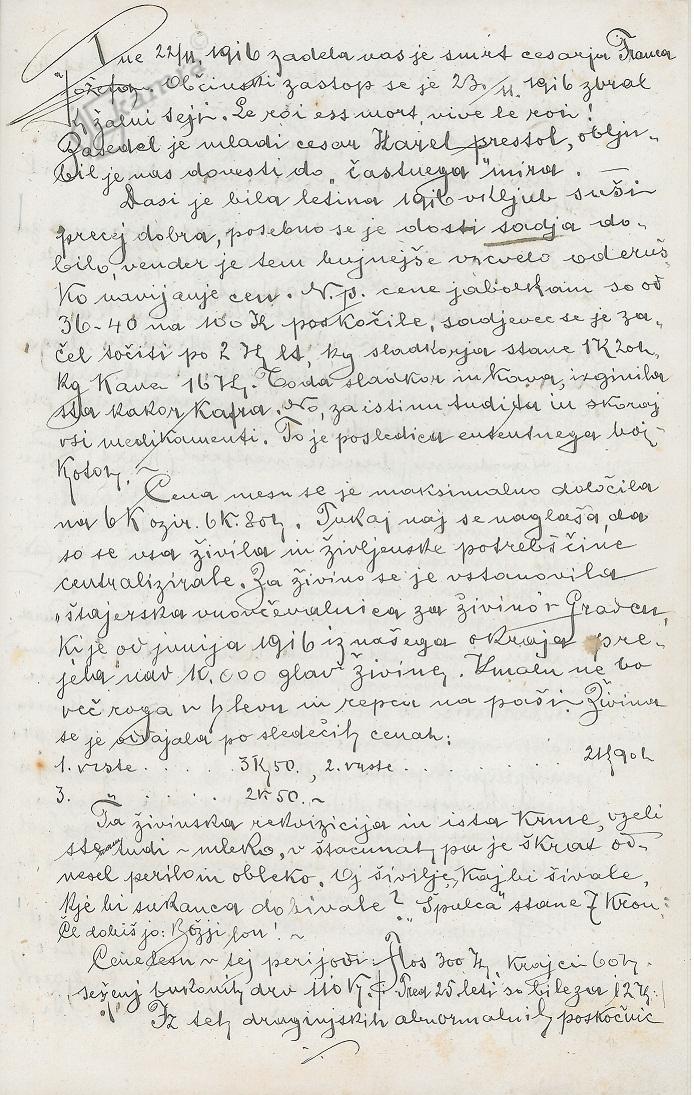 Dne 22/11. 1916 zadela nas je smrt cesarja Franca
Jožefa. Občinski zastop se je 23./11. 1916 zbral
k žalni seji. Le roi ess mort, vive le roi!
Zasedel je mladi cesar Karel prestol, oblju-
bil je nas dovesti do "častnega" mira. —
Dasi je bila letina 1916 vkljub suši
precej dobra, posebno se je dosti sadja do-
bilo, vender je tem bujnejše vzcvelo oderuš-
ko navijanje cen. N. p. cene jabolkam so od
36-40 na 100 K poskočile, sadjevec se je za-
čel točiti po 2 K lt, kg sladkorja stane 1K 20h,
kg Kave 16 K. Toda sladkor in kava, izginila
sta kakor Kafra. No, zaistinu tudi ta in skoraj
vsi medikamenti. To je posledica ententnega boj-
kota. ~
Cena mesu se je maksimalno določila
na 6K ozir. 6K. 80h. Tukaj naj se naglaša, da
so se vsa živila in življenske potrebščine
centralizirale. Za živino se je vstanovila
"štajerska vnovčevalnica za živino" v Gradcu,
ki je od junija 1916 iz našega okraja pre-
jela nad 10.000 glav živine. Kmalu ne bo
več roga v hlevu in repca na paši. Živina
se je oddajala po sledečih cenah:
1. vrste . . . . 3K 50, 2. vrste . . . . 2K 90h
3. " . . . . 2K 50. ~
Ta živinska rekvizicija in ista krme, vzeli
ste tudi ~ mleko, v štacunah pa je škrat od-
nesel perilo in obleko. Oj šivilje, kaj bi šivale,
kje bi sukanca dobivale? "Špulca" stane 7 Kron:
Če dobiš jo: Božji lon! ~
Cene lesu v tej perijodi: Flos 300 K, krajci 60h,
seženj bukovih drv 110 K. Pred 25 leti so bile za 12 K.
Iz teh draginjskih abnormalnih poskočnic